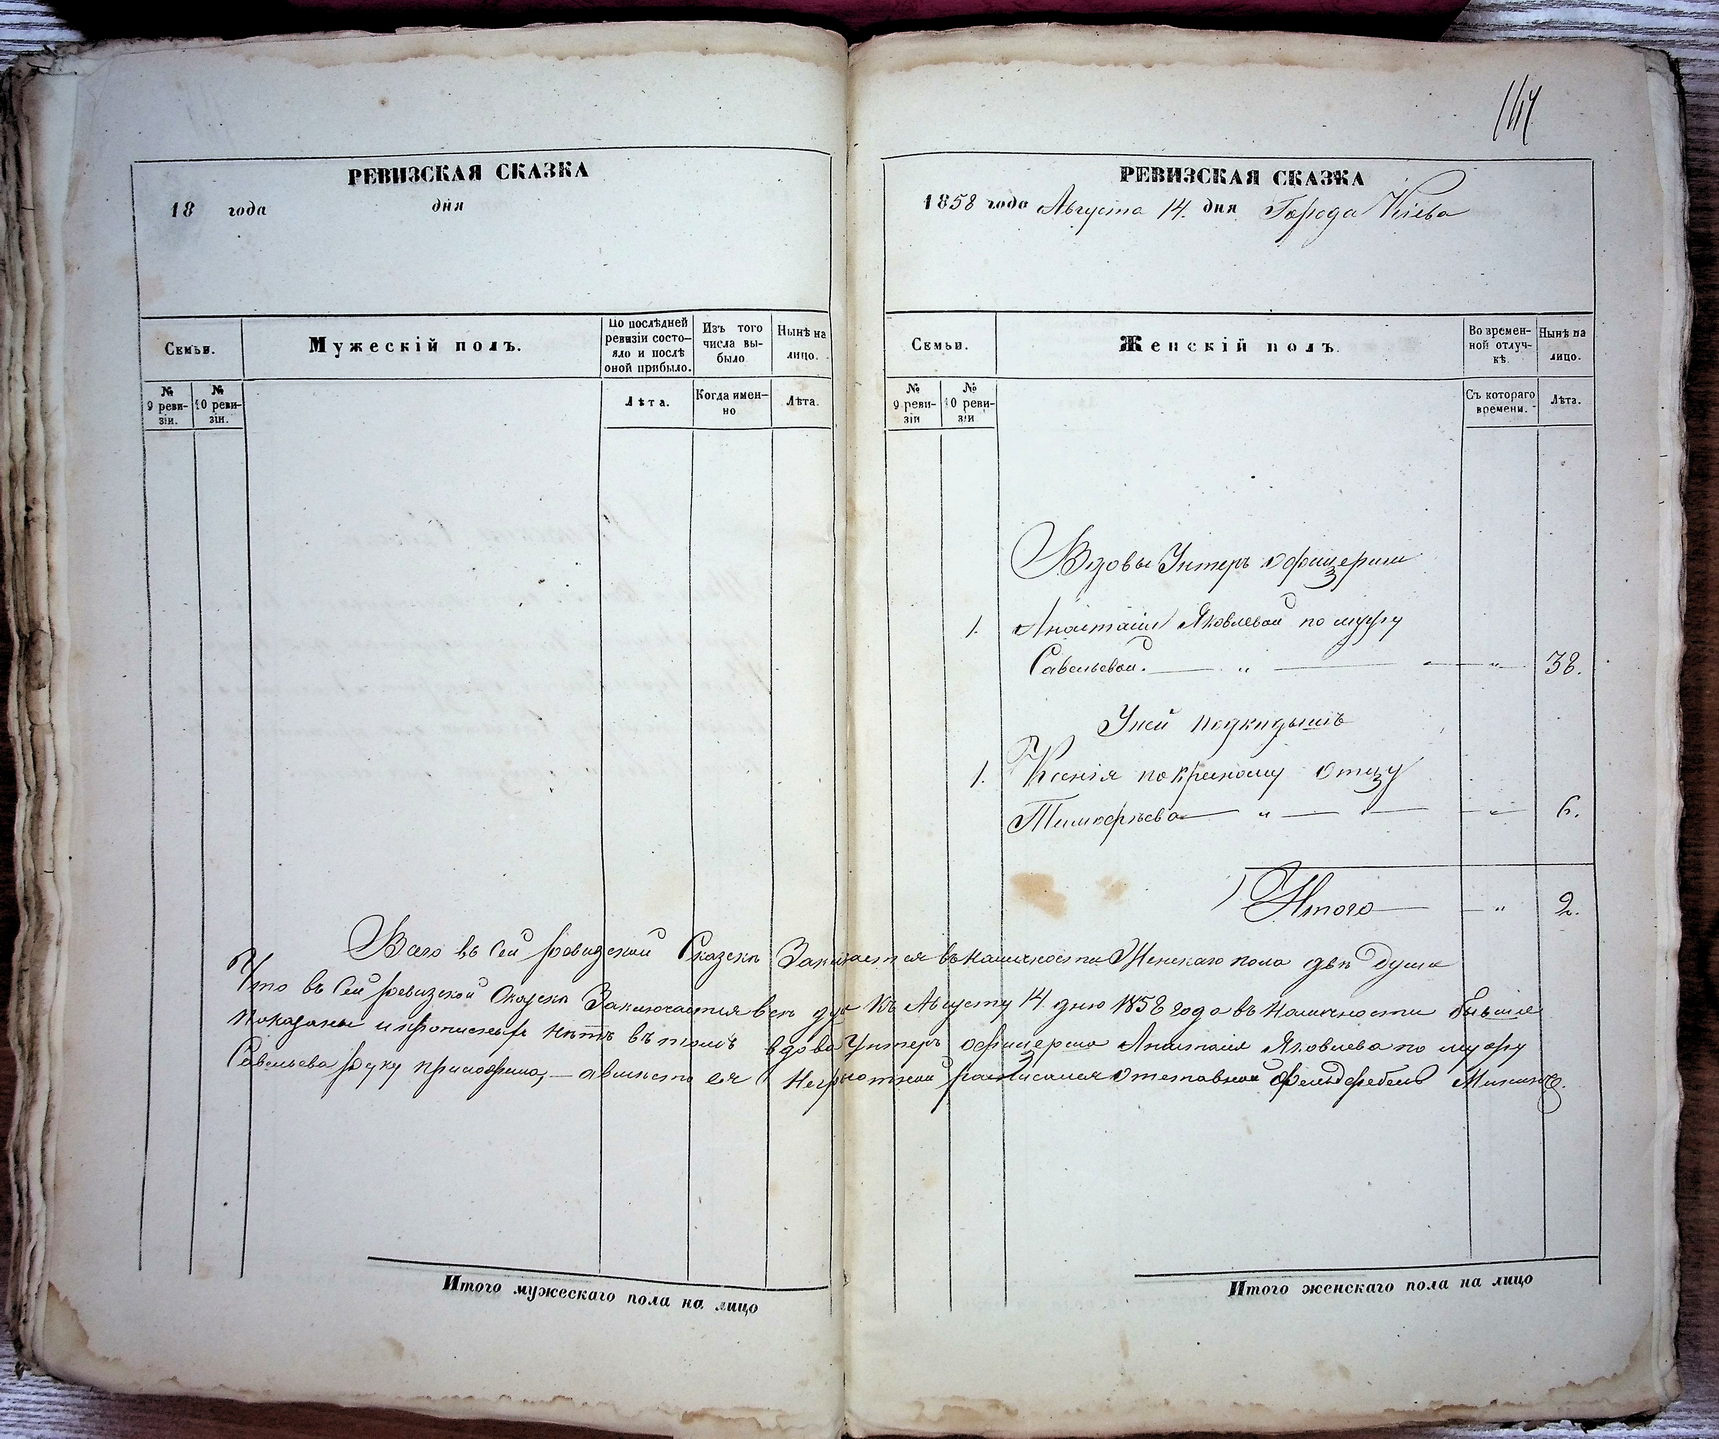 144
РЕВИЗСКАЯ СКАЗКА
18 года дня
Семьи.
Мужескій полъ.
По послѣдней ревизіи состояло и послѣ оной прибыло.
Изъ того числа выбыло
Нынѣ на лицо.
№ 9 ревизіи.
№ 10 ревизіи.
Лѣта.
Когда именно
Лѣта.
РЕВИЗСКАЯ СКАЗКА
1858 года Августа 14. дня Города Кіева
Семьи.
Женскій полъ.
Во временной отлучкѣ.
Нынѣ на лицо.
№ 9 ревизіи
№ 10 ревизіи
Съ котораго времени.
Лѣта.
Вдовы Унтеръ офицерши
1. Анастасіи Яковлевой по мужу
Савельевой. — „ — „ — 38.
У ней подкидышъ
1. Ксенія по крестному отцу
Тимофѣева — „ — „ — 6.
Итого — „ 2.
Всего въ сей ревизской Сказкѣ Заключается въ наличности Женскаго пола двѣ души
Что въ сей ревизской Сказкѣ Заключается всѣ къ Августу 14 дню 1858 года въ наличности бывшіе
показаны и прописныхъ нѣтъ въ томъ вдова Унтеръ офицерша Анастасія Яковлева по мужу
Савельева руку приложила, — а вмѣсто ея неграмотной росписался отставной фельдфебель
Итого мужескаго пола на лицо
Итого женскаго пола на лицо